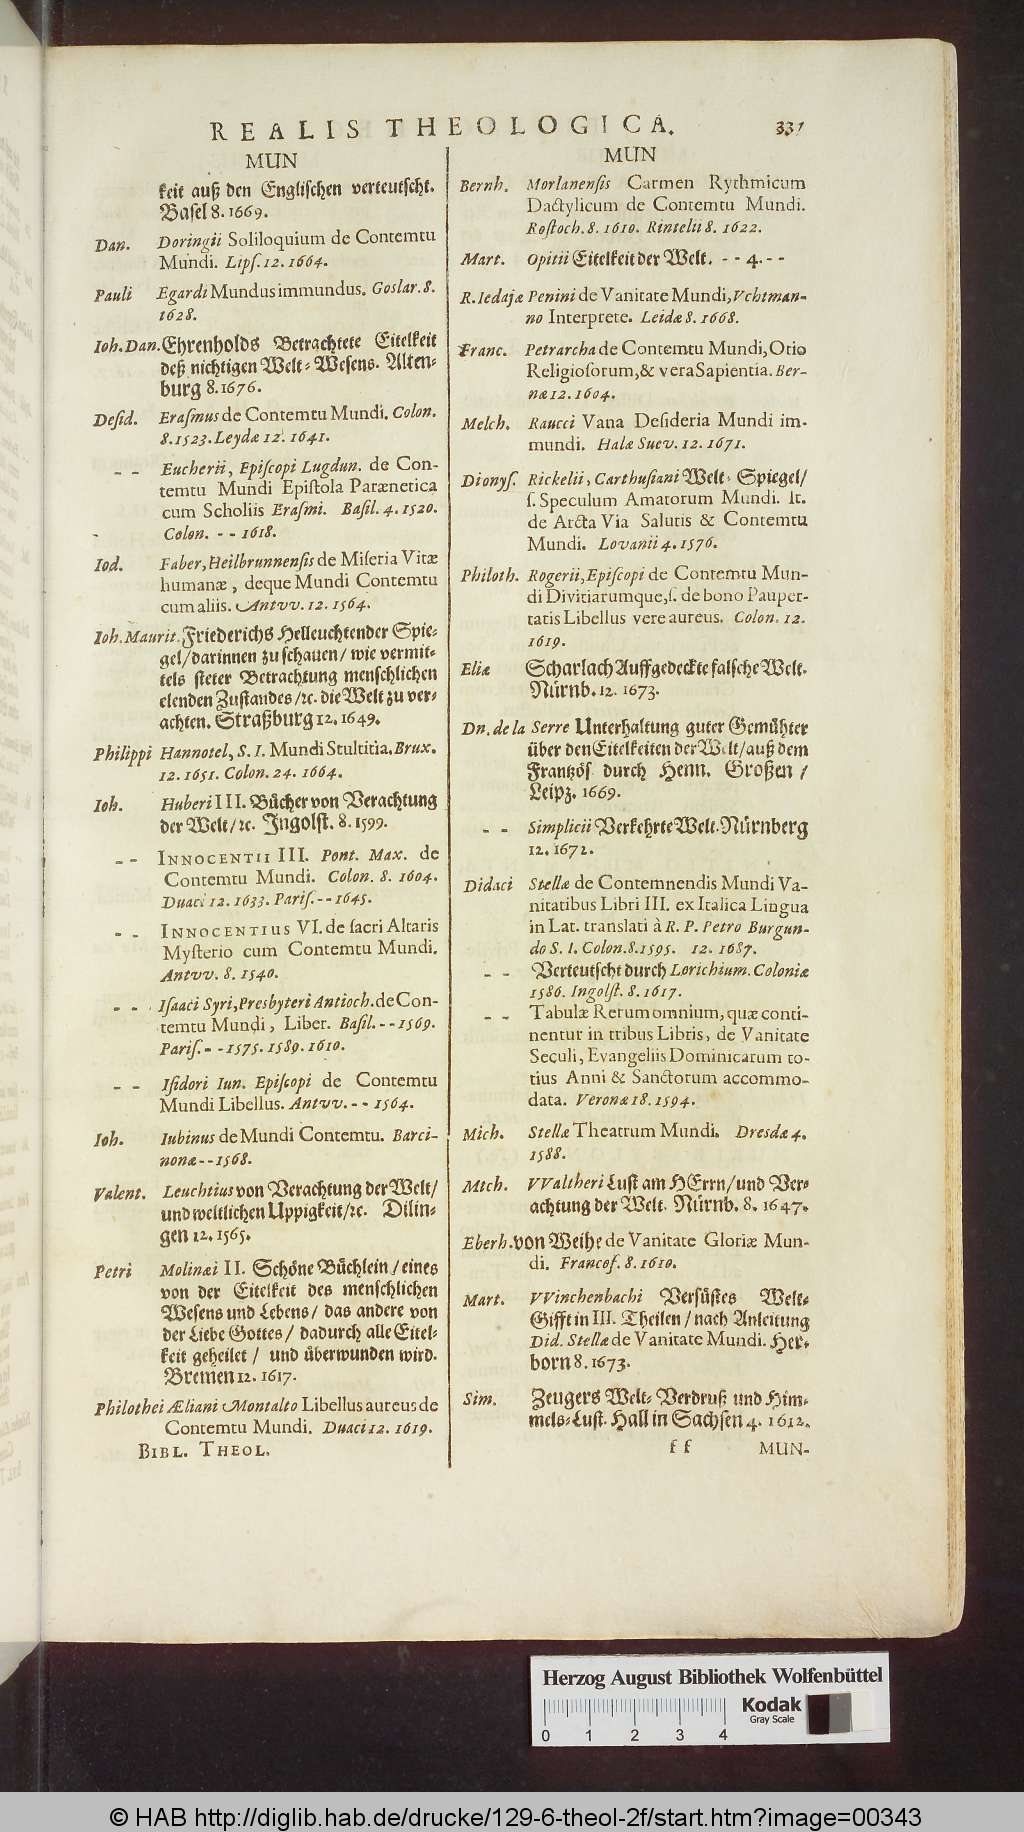 REALIS THEOLOGICA. 331
MUN
keit auß den Englischen verteutscht.
Basel 8. 1669.
Dan. Doringii Soliloquium de Contemtu
Mundi. Lipſ. 12. 1664.
Pauli Egardi Mundus immundus. Goslar. 8.
1628.
Ioh. Dan. Ehrenholds Betrachtete Eitelkeit
deß nichtigen Welt-Wesens. Alten-
burg 8. 1676.
Deſid. Eraſmus de Contemtu Mundi. Colon.
8. 1523. Leydæ 12. 1641.
- - Eucherii, Epiſcopi Lugdun. de Con-
temtu Mundi Epiſtola Parænetica
cum Scholiis Eraſmi. Baſil. 4. 1520.
Colon. - - 1618.
Iod. Faber, Heilbrunnenſis de Miſeria Vitæ
humanæ, deque Mundi Contemtu
cum aliis. Antvv. 12. 1564.
Ioh. Maurit. Friederichs Helleuchtender Spie-
gel/ darinnen zu schauen/ wie vermit-
tels steter Betrachtung menschlichen
elenden Zustandes/ ꝛc. die Welt zu ver-
achten. Straßburg 12. 1649.
Philippi Hannotel, S. I. Mundi Stultitia. Brux.
12. 1651. Colon. 24. 1664.
Ioh. Huberi III. Bücher von Verachtung
der Welt/ ꝛc. Ingolst. 8. 1599.
- - INNOCENTII III. Pont. Max. de
Contemtu Mundi. Colon. 8. 1604.
Duaci 12. 1633. Pariſ. - - 1645.
- - INNOCENTIUS VI. de ſacri Altaris
Myſterio cum Contemtu Mundi.
Antvv. 8. 1540.
- - Iſaaci Syri, Presbyteri Antioch. de Con-
temtu Mundi, Liber. Baſil. - - 1569.
Pariſ. - - 1575. 1589. 1610.
- - Iſidori Iun. Epiſcopi de Contemtu
Mundi Libellus. Antvv. - - 1564.
Ioh. Iubinus de Mundi Contemtu. Barci-
nonæ - - 1568.
Valent. Leuchtius von Verachtung der Welt/
und weltlichen Uppigkeit/ ꝛc. Dilin-
gen 12. 1565.
Petri Molinæi II. Schöne Büchlein/ eines
von der Eitelkeit des menschlichen
Wesens und Lebens/ das andere von
der Liebe Gottes/ dadurch alle Eitel-
keit geheilet/ und überwunden wird.
Bremen 12. 1617.
Philothei Æliani Montalto Libellus aureus de
Contemtu Mundi. Duaci 12. 1619.
BIBL. THEOL.
MUN
Bernh. Morlanenſis Carmen Rythmicum
Dactylicum de Contemtu Mundi.
Roſtoch. 8. 1610. Rintelii 8. 1622.
Mart. Opitii Eitelkeit der Welt. - - 4. - -
R. Iedajæ Penini de Vanitate Mundi, Vchtman-
no Interprete. Leidæ 8. 1668.
Franc. Petrarcha de Contemtu Mundi, Otio
Religioſorum, & vera Sapientia. Ber-
næ 12. 1604.
Melch. Raucci Vana Deſideria Mundi im-
mundi. Halæ Suev. 12. 1671.
Dionyſ. Rickelii, Carthuſiani Welt-Spiegel/
ſ. Speculum Amatorum Mundi. It.
de Arcta Via Salutis & Contemtu
Mundi. Lovanii 4. 1576.
Philoth. Rogerii, Epiſcopi de Contemtu Mun-
di Divitiarumque, ſ. de bono Pauper-
tatis Libellus vere aureus. Colon. 12.
1619.
Eliæ Scharlach Auffgedeckte falsche Welt.
Nürnb. 12. 1673.
Dn. de la Serre Unterhaltung guter Gemühter
über den Eitelkeiten der Welt/ auß dem
Frantzös durch Henn. Großen/
Leipz. 1669.
- - Simplicii Verkehrte Welt. Nürnberg
12. 1672.
Didaci Stellæ de Contemnendis Mundi Va-
nitatibus Libri III. ex Italica Lingua
in Lat. translati à R. P. Petro Burgun-
do S. I. Colon. 8. 1595. 12. 1687.
- - Verteutscht durch Lorichium. Coloniæ
1586. Ingolſt. 8. 1617.
- - Tabulæ Rerum omnium, quæ conti-
nentur in tribus Libris, de Vanitate
Seculi, Evangeliis Dominicarum to-
tius Anni & Sanctorum accommo-
data. Veronæ 18. 1594.
Mich. Stellæ Theatrum Mundi. Dresdæ 4.
1588.
Mich. VValtheri Lust am HErrn/ und Ver-
achtung der Welt. Nürnb. 8. 1647.
Eberh. von Weihe de Vanitate Gloriæ Mun-
di. Francof. 8. 1610.
Mart. VVinchenbachi Versüstes Welt-
Gifft in III. Theilen/ nach Anleitung
Did. Stellæ de Vanitate Mundi. Her-
born 8. 1673.
Sim. Zeugers Welt-Verdruß und Him-
mels-Lust. Hall in Sachsen 4. 1612.
f f MUN-
Herzog August Bibliothek Wolfenbüttel
Kodak
Gray Scale
0 1 2 3 4
© HAB http://diglib.hab.de/drucke/129-6-theol-2f/start.htm?image=00343